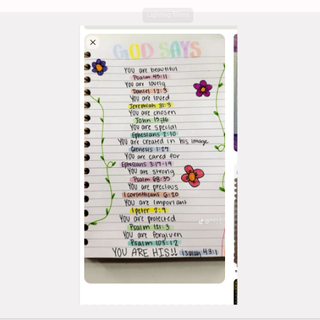 GOD SAYS
You are beautiful
Psalm 45:11
You are
You are loved
Jeremiah 31:3
You are chosen
John 15:16
You are special
Ephesians 2:10
You are created in his image
Genesis 1:27
You are cared for
Ephesians 3:17-19
You are strong
Psalm
You are precious
1 Corinthians 6:20
You are important
1 Peter 2:9
You are protected
Psalm 121:3
You are forgiven
Psalm 103:12
YOU ARE HIS!! Isaiah 43:1